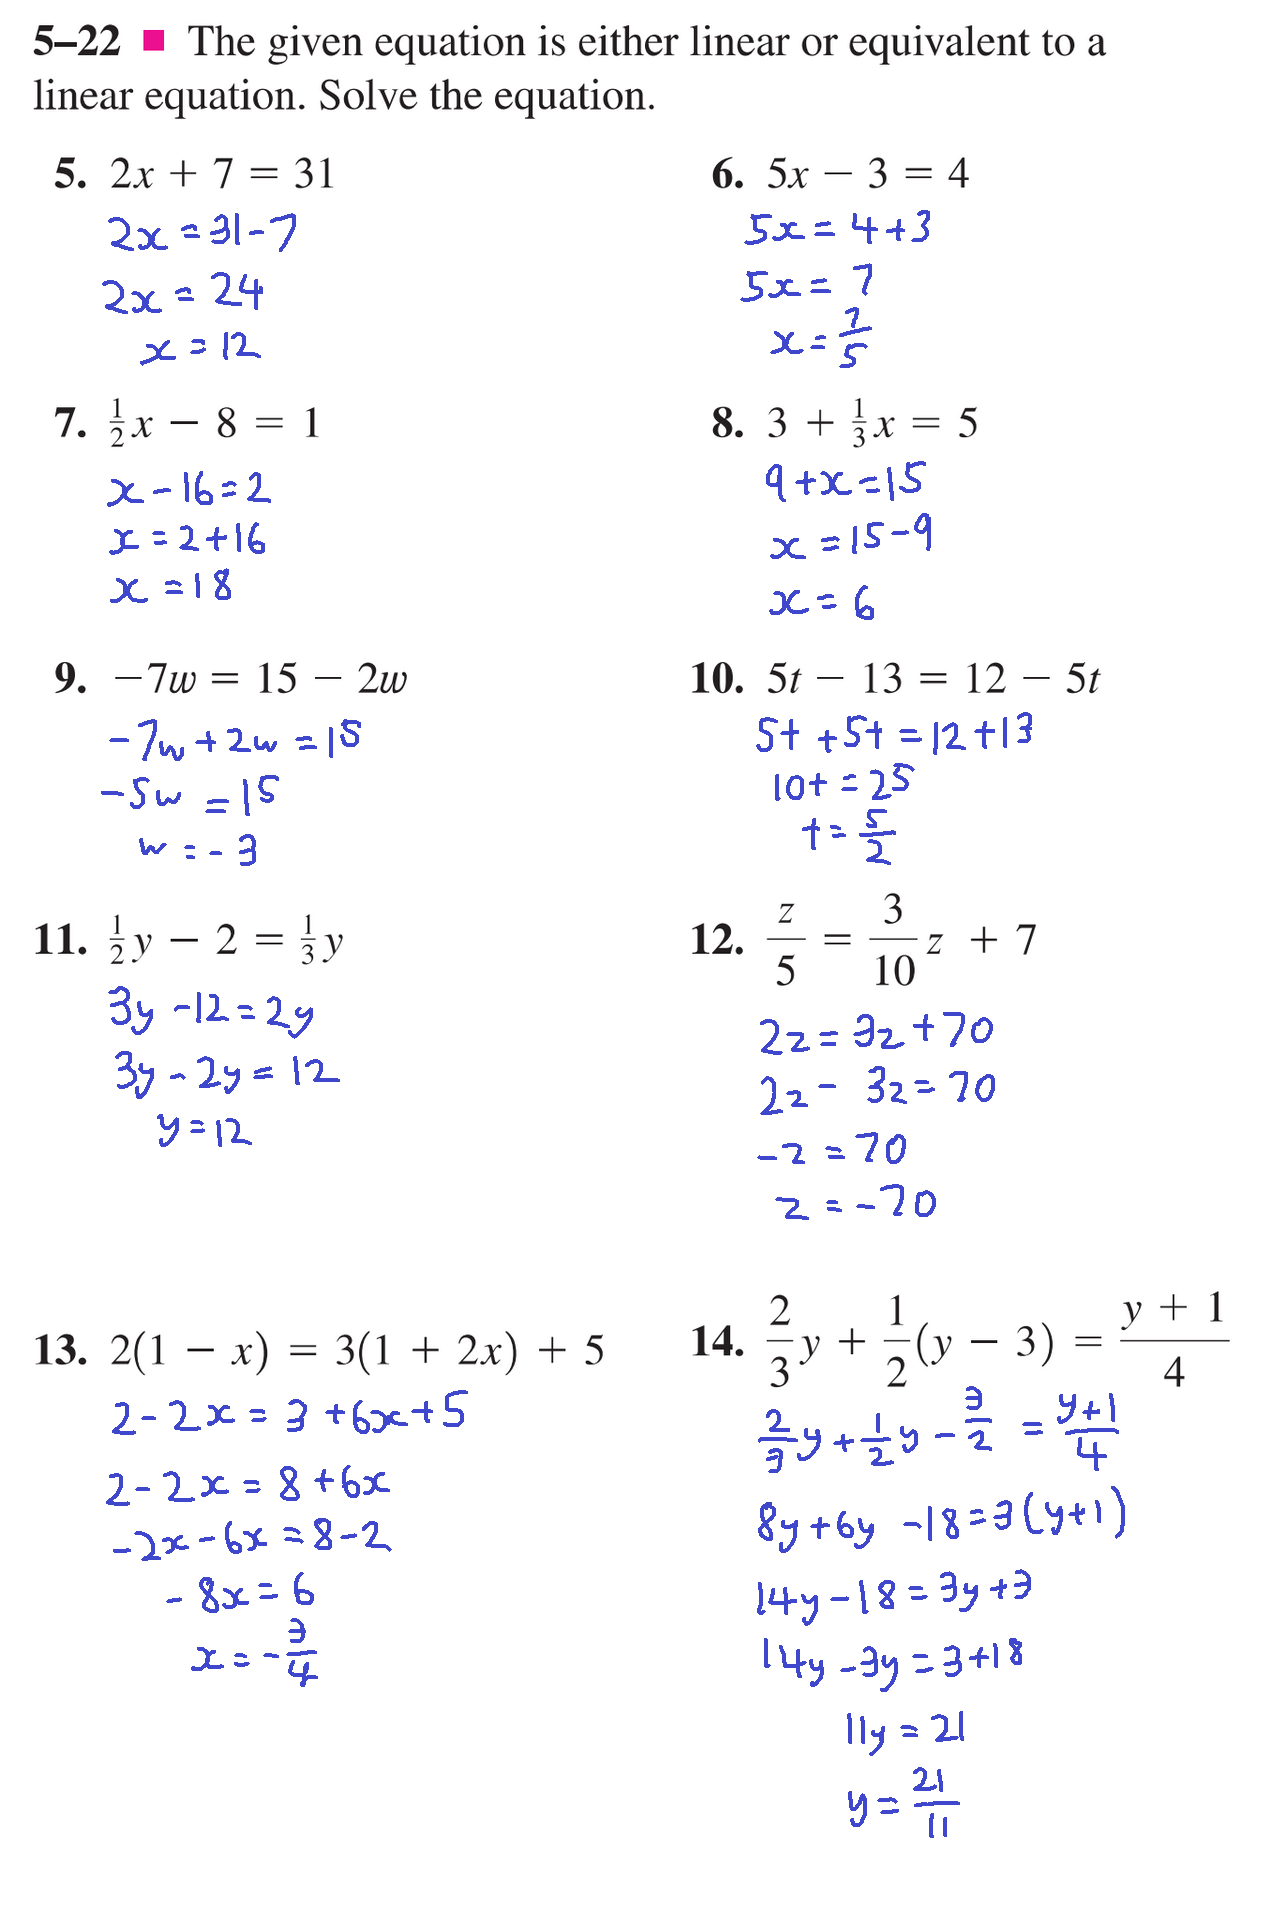 5–22 ■ The given equation is either linear or equivalent to a
linear equation. Solve the equation.
5. 2x + 7 = 31
2x = 31 - 7
2x = 24
x = 12
6. 5x − 3 = 4
5x = 4 + 3
5x = 7
x = 7/5
7. 1/2 x − 8 = 1
x - 16 = 2
x = 2 + 16
x = 18
8. 3 + 1/3 x = 5
9 + x = 15
x = 15 - 9
x = 6
9. −7w = 15 − 2w
-7w + 2w = 15
-5w = 15
w = -3
10. 5t − 13 = 12 − 5t
5t + 5t = 12 + 13
10t = 25
t = 5/2
11. 1/2 y − 2 = 1/3 y
3y - 12 = 2y
3y - 2y = 12
y = 12
12. z/5 = 3/10 z + 7
2z = 3z + 70
2z - 3z = 70
-z = 70
z = -70
13. 2(1 − x) = 3(1 + 2x) + 5
2 - 2x = 3 + 6x + 5
2 - 2x = 8 + 6x
-2x - 6x = 8 - 2
-8x = 6
x = -3/4
14. 2/3 y + 1/2 (y − 3) = (y + 1)/4
2/3 y + 1/2 y - 3/2 = (y+1)/4
8y + 6y - 18 = 3(y+1)
14y - 18 = 3y + 3
14y - 3y = 3 + 18
11y = 21
y = 21/11